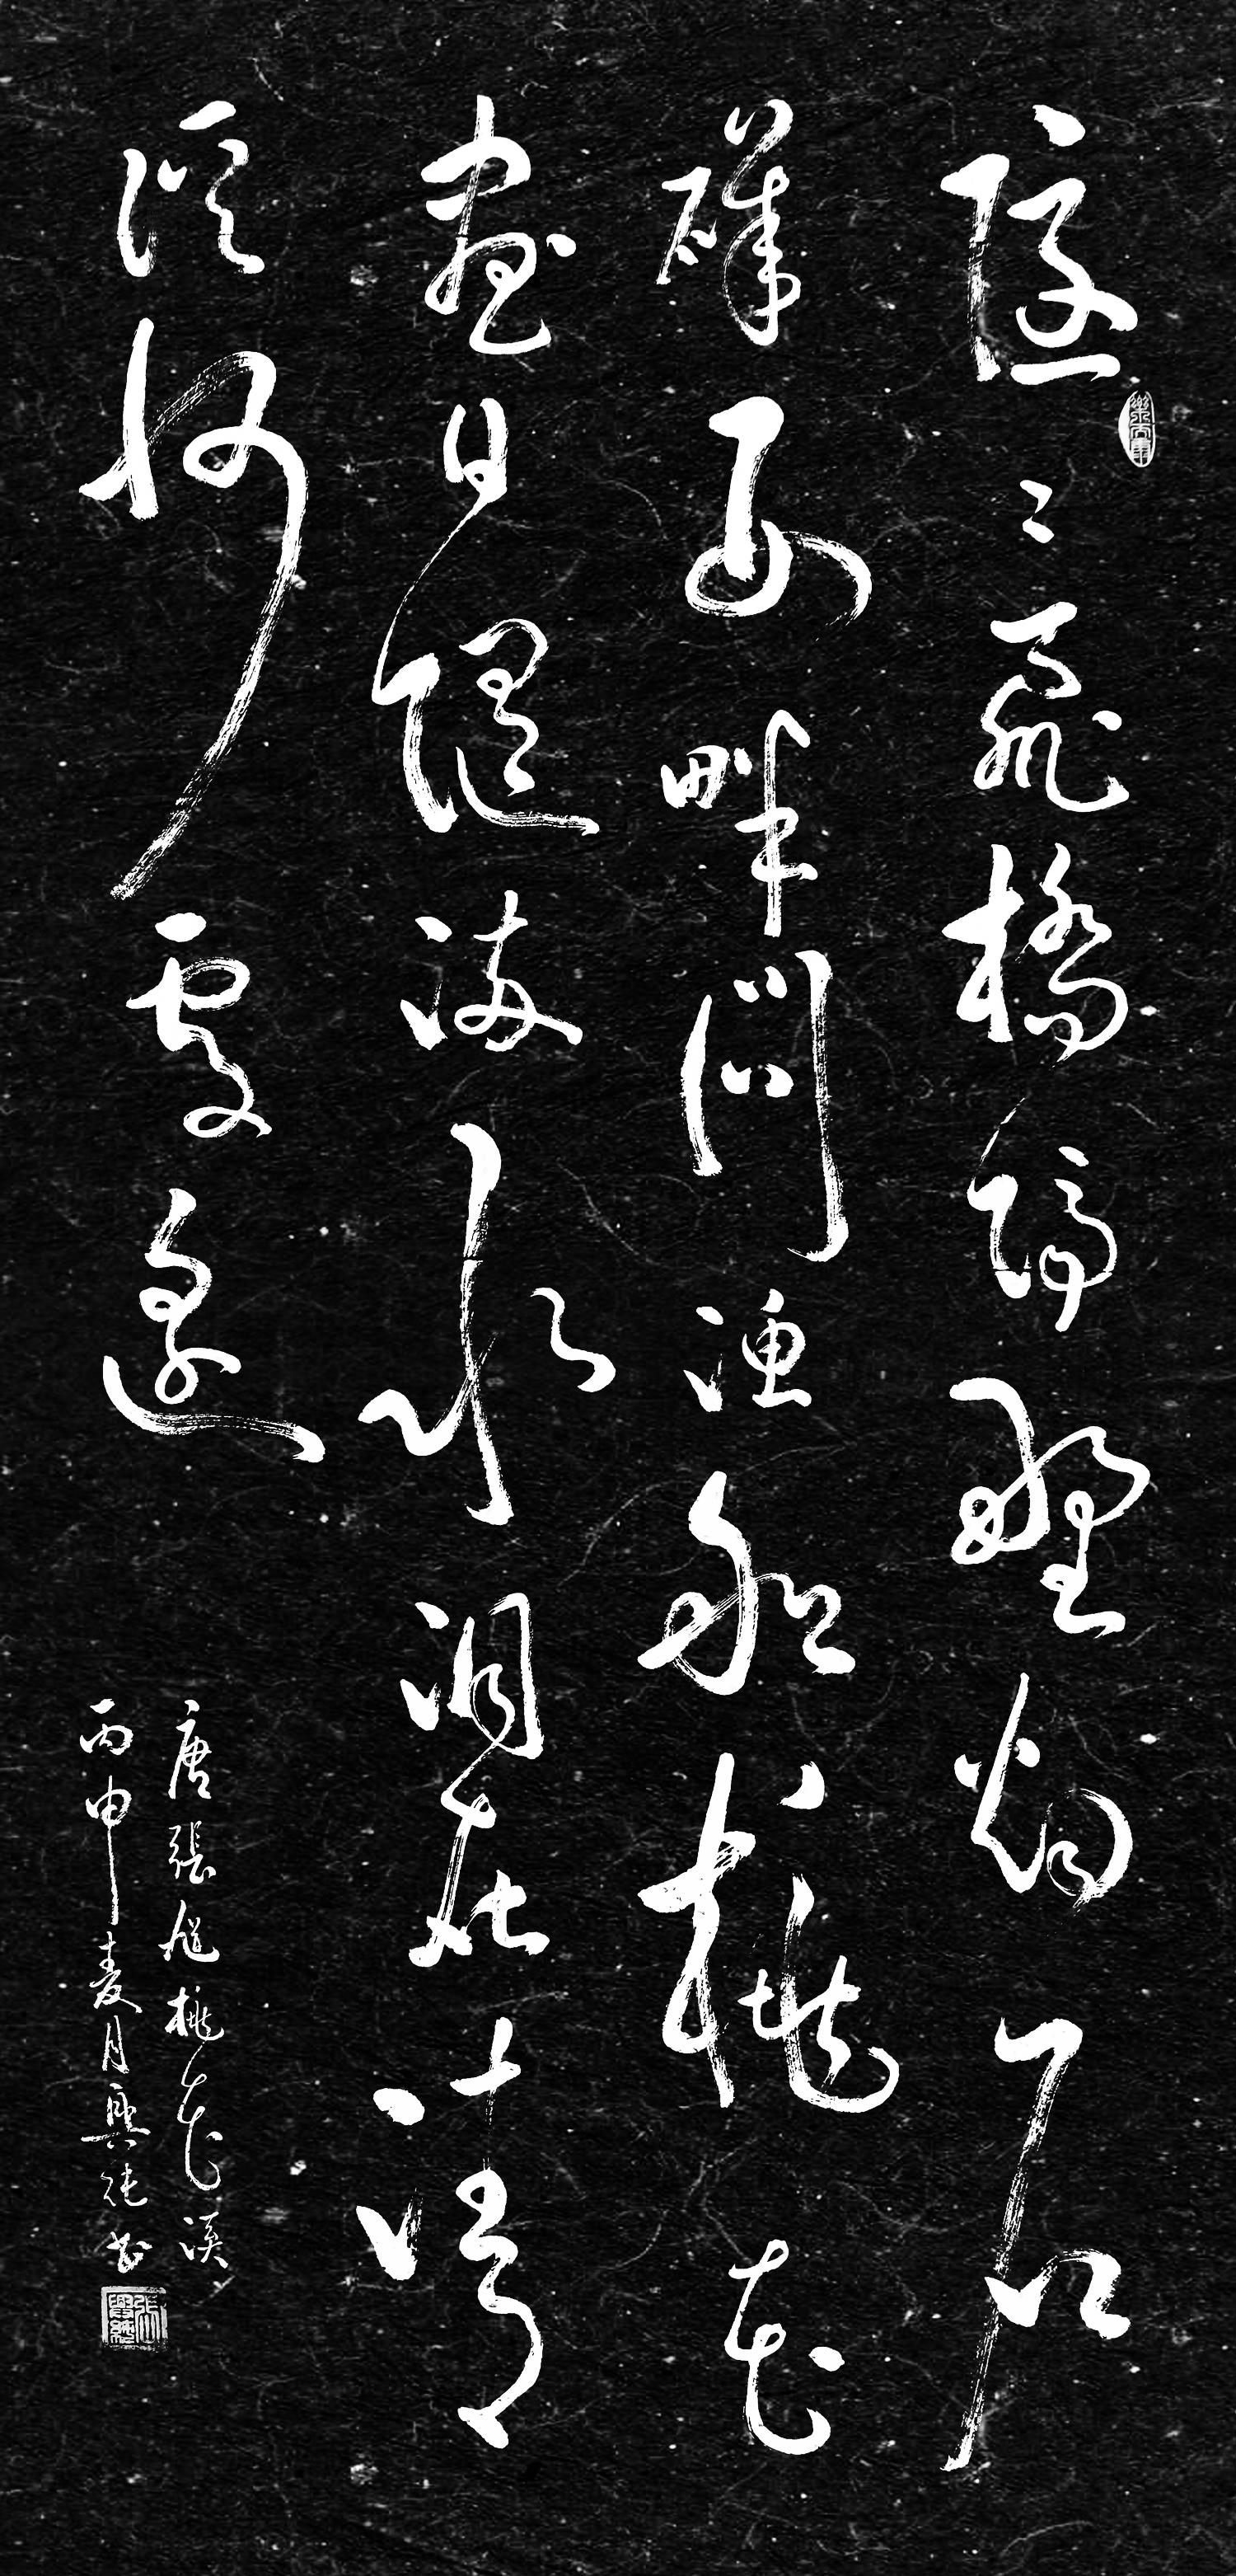 隱々飛橋隔野烟石
磯西畔問漁船桃花
盡日隨流水洞在清
溪何處邊
唐張旭桃花溪
丙申麦月興純书